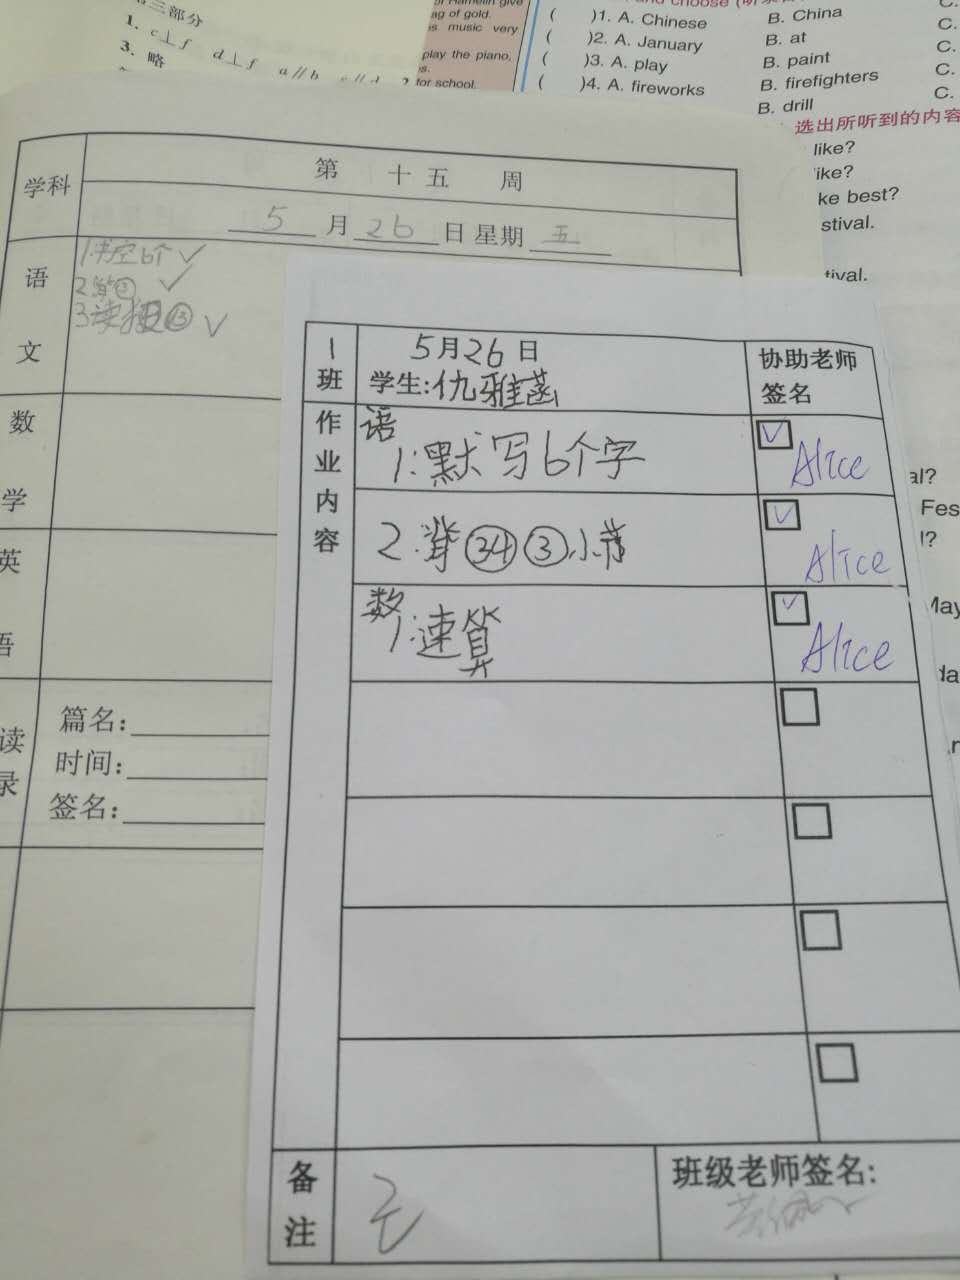 三部分
1. c⊥f d⊥f a∥b
3. 略
ag of gold.
s music very
play the piano,
for school.
( )1. A. Chinese B. China C.
( )2. A. January B. at C.
( )3. A. play B. paint C.
( )4. A. fireworks B. firefighters C.
B. drill
选出所听到的内容
like?
ike?
ke best?
stival.
tival.
al?
Fes
May
学科
第 十五 周
5 月 26 日 星期 五
语文
数学
英语
读
录
篇名:
时间:
签名:
1班
5月26日
学生:仇雅菡
协助老师签名
作业内容
语
1.默写6个字
Alice
2.背㉞③小节
Alice
数
1.速算
Alice
备注
无
班级老师签名: